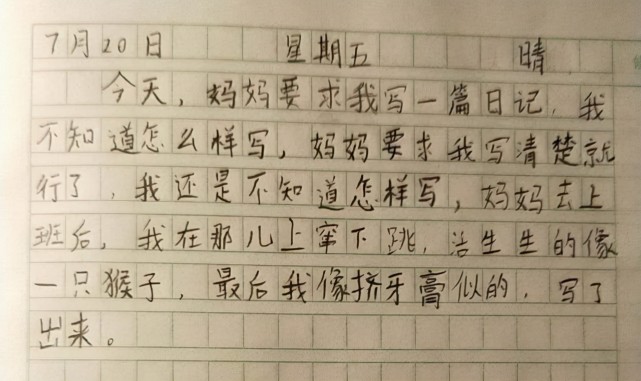 7月20日 星期五 晴
今天，妈妈要求我写一篇日记，我
不知道怎么样写，妈妈要求我写清楚就
行了，我还是不知道怎样写，妈妈去上
班后，我在那儿上窜下跳，活生生的像
一只猴子，最后我像挤牙膏似的，写了
出来。